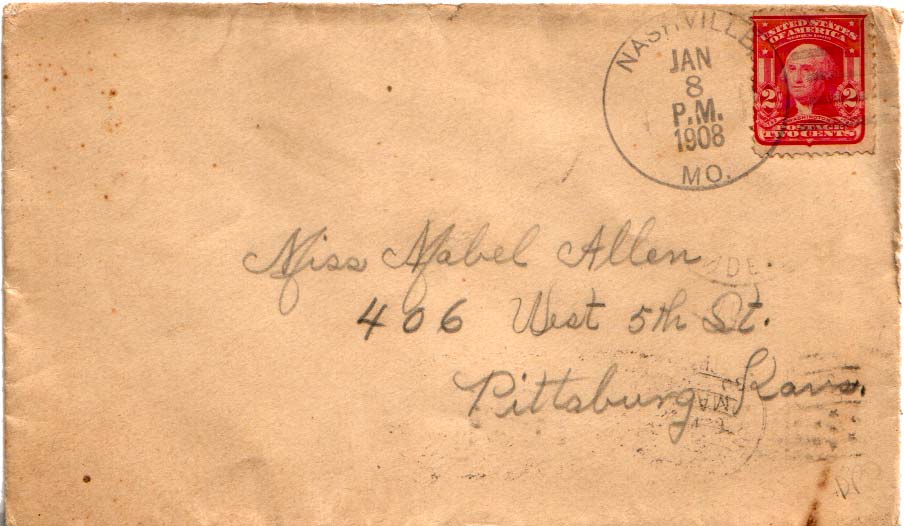 NASHVILLE
JAN
8
P.M.
1908
MO.
UNITED STATES
OF AMERICA
SERIES 1902
2 2
WASHINGTON
POSTAGE
TWO CENTS
Miss Mabel Allen
406 West 5th St.
Pittsburg Kans.